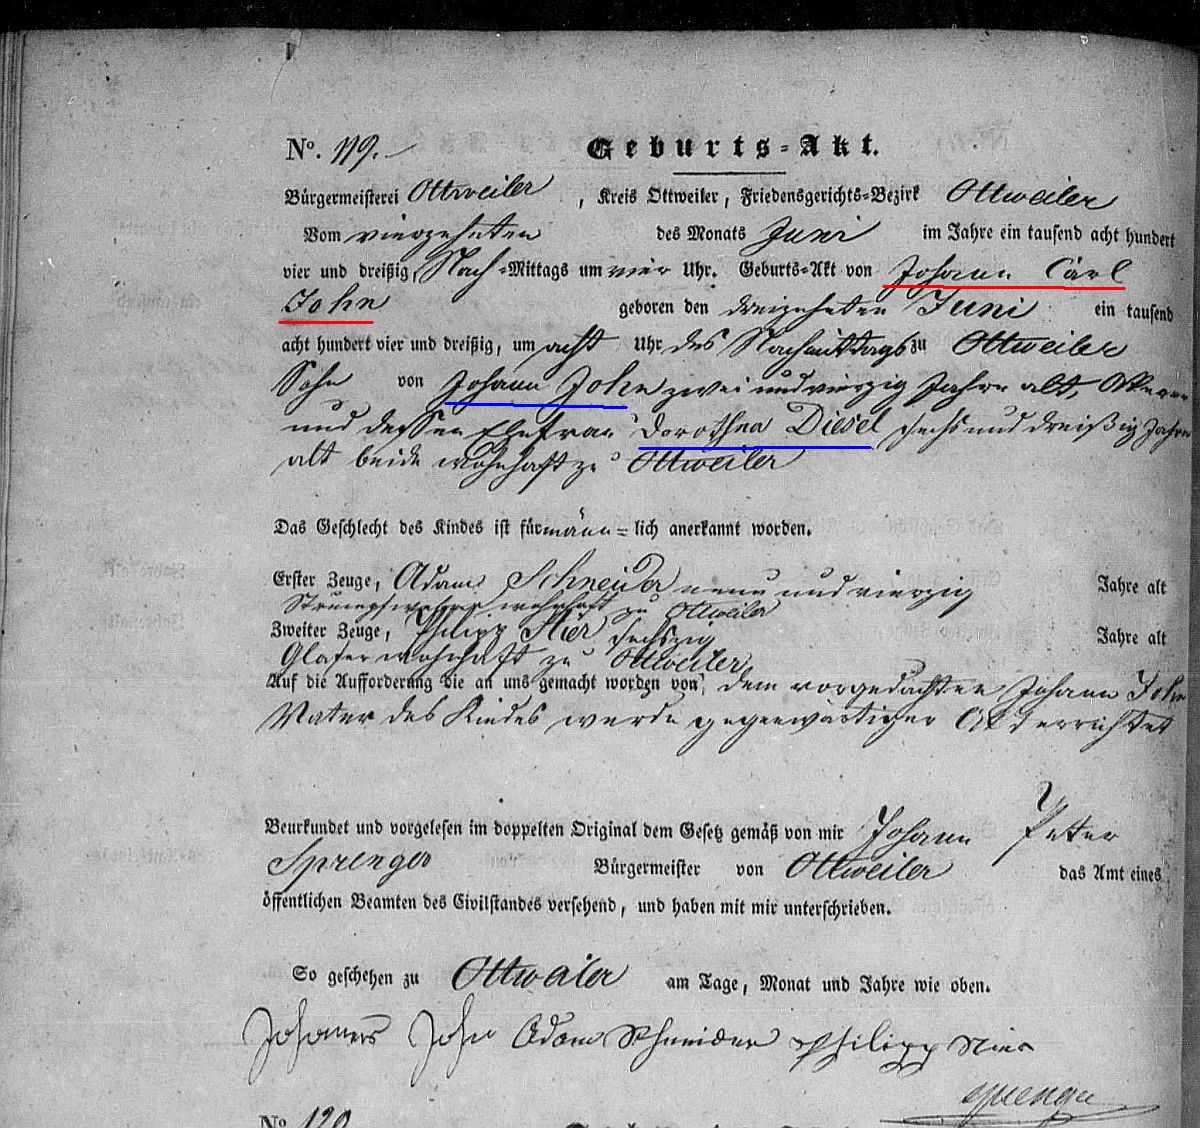 No. 119. Geburts-Akt.
Bürgermeisterei Ottweiler, Kreis Ottweiler, Friedensgerichts-Bezirk Ottweiler
Vom vierzehnten des Monats Juni im Jahre ein tausend acht hundert
vier und dreißig, Nach-Mittags um vier Uhr. Geburts-Akt von Johann Carl
John geboren den dreizehnten Juni ein tausend
acht hundert vier und dreißig, um acht Uhr des Nachmittags zu Ottweiler
Sohn von Johann John zwei und vierzig Jahre alt,
und dessen Ehefrau Dorothea Diesel sechs und dreißig Jahre
alt beide wohnhaft zu Ottweiler
Das Geschlecht des Kindes ist für männ=lich anerkannt worden.
Erster Zeuge, Adam Schneider neun und vierzig Jahre alt
Strumpfweber wohnhaft zu Ottweiler
Zweiter Zeuge, Philipp sechszig Jahre alt
Glaser wohnhaft zu Ottweiler
Auf die Aufforderung die an uns gemacht worden von, dem vorgedachten Johann John
Vater des Kindes wurde gegenwärtiger Akt errichtet
Beurkundet und vorgelesen im doppelten Original dem Gesetz gemäß von mir Johann Peter
Sprenger Bürgermeister von Ottweiler das Amt eines
öffentlichen Beamten des Civilstandes versehend, und haben mit mir unterschrieben.
So geschehen zu Ottweiler am Tage, Monat und Jahre wie oben.
Johannes John Adam Schneider Philipp
Sprenger
No. 120